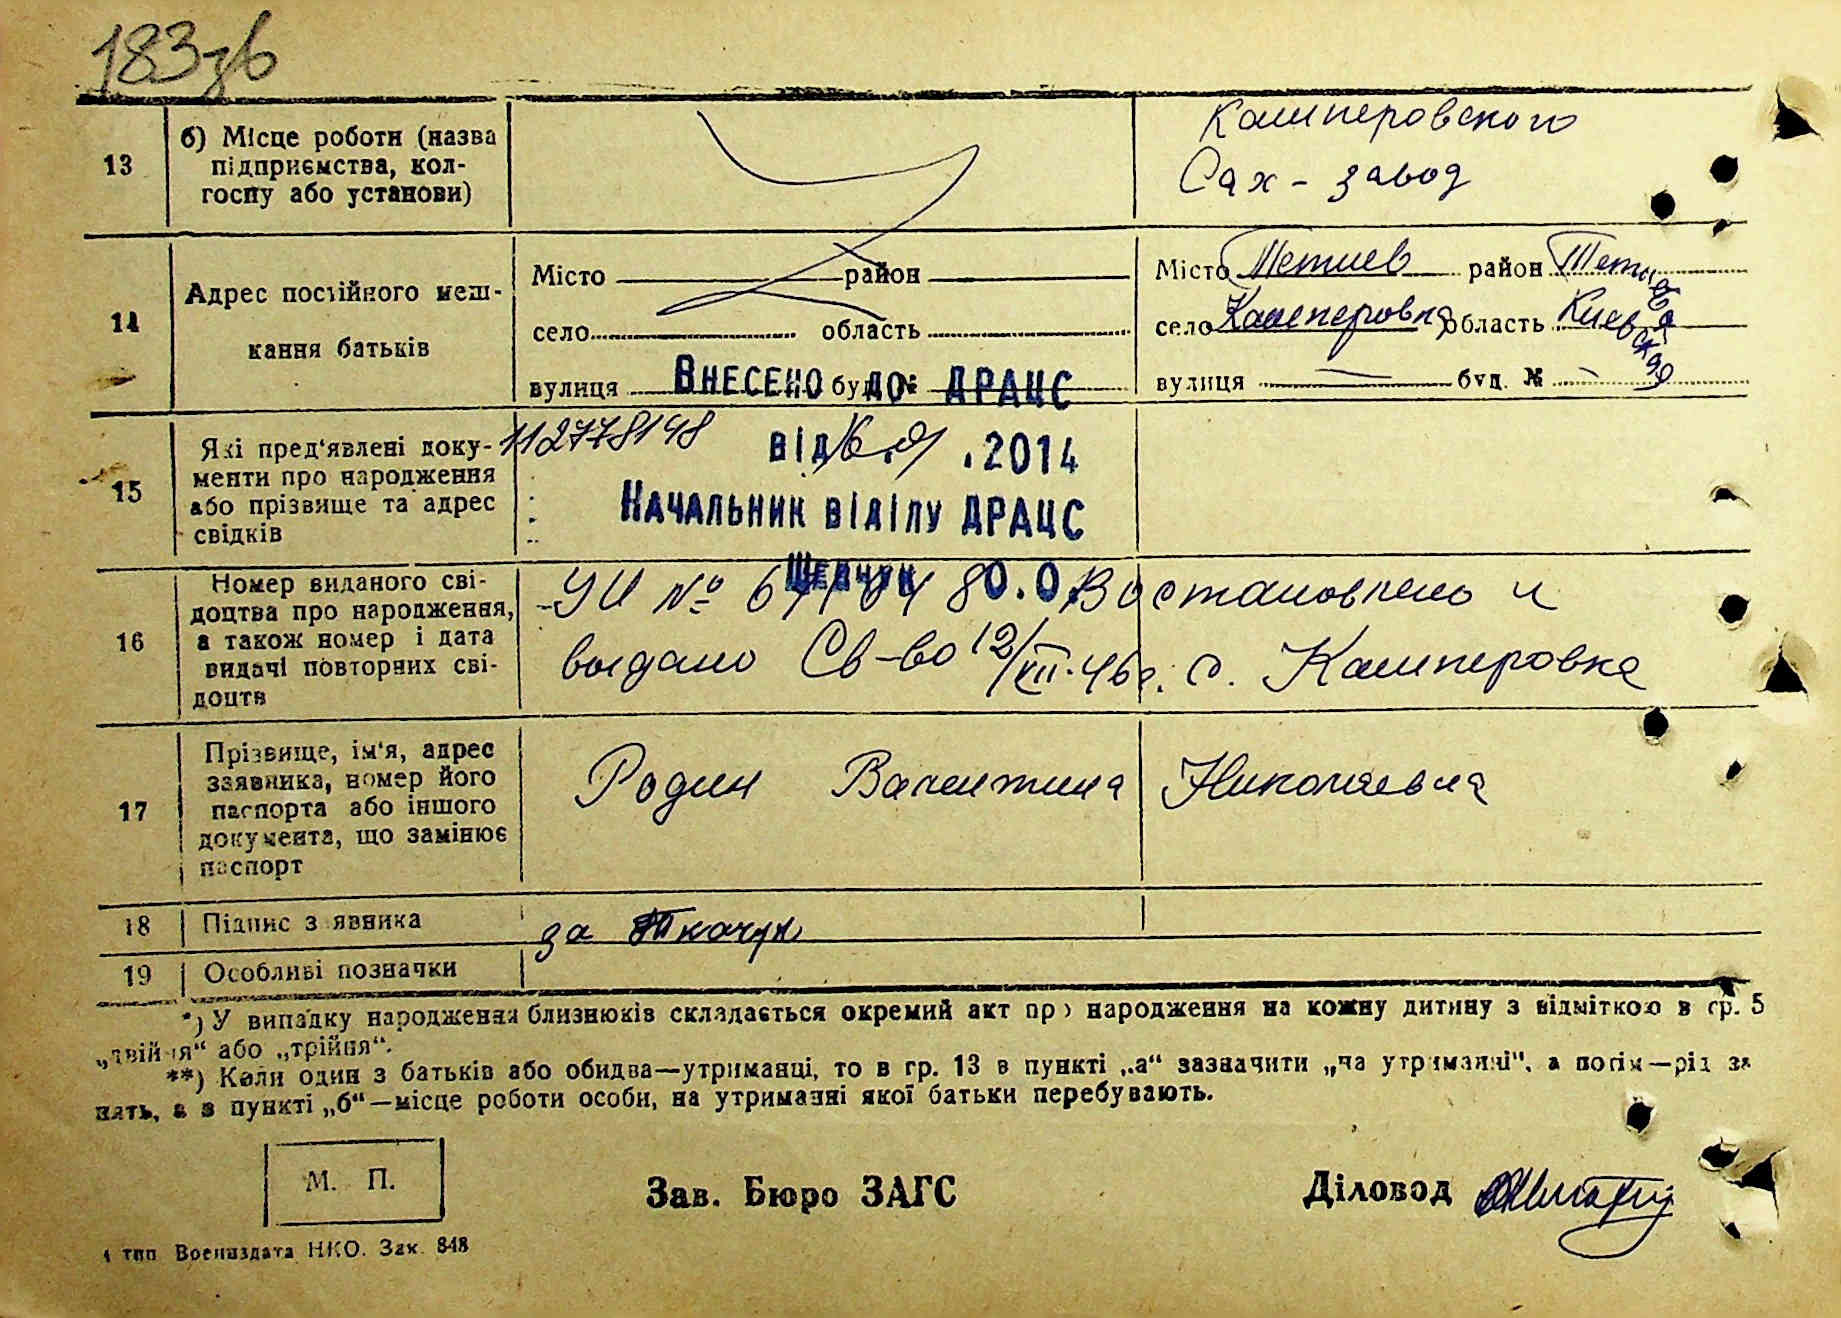 183зв
13
б) Місце роботи (назва
підприємства, кол-
госпу або установи)
Кашперовского
Сах - завод
14
Адрес постійного меш-
кання батьків
Місто район
село область
вулиця буд. №
Місто Тетиев район Тетиевский
село Кашперовка область Киевская
вулиця — буд. № -
Внесено до ДРАЦС
15
Які пред'явлені доку-
менти про народження
або прізвище та адрес
свідків
112778148
від 16.01.2014
Начальник відділу ДРАЦС
О.О.
16
Номер виданого сві-
доцтва про народження,
а також номер і дата
видачі повторних сві-
доцтв
УИ № Востановлено и
выдано Св-во 12/XII.46г. с. Кашперовка
17
Прізвище, ім'я, адрес
заявника, номер його
паспорта або іншого
документа, що замінює
паспорт
Родин Валентина Николаевна
18
Підпис з явника
за Ткачук
19
Особливі позначки
*) У випадку народження близнюків складається окремий акт про народження на кожну дитину з відміткою в гр. 5
„двійня“ або „трійня“.
**) Коли один з батьків або обидва—утриманці, то в гр. 13 в пункті „а“ зазначити „на утриманні“, а потім—рід за
нять, а в пункті „б“—місце роботи особи, на утриманні якої батьки перебувають.
М. П.
Зав. Бюро ЗАГС
Діловод
1 тип Воениздата НКО. Зак. 848